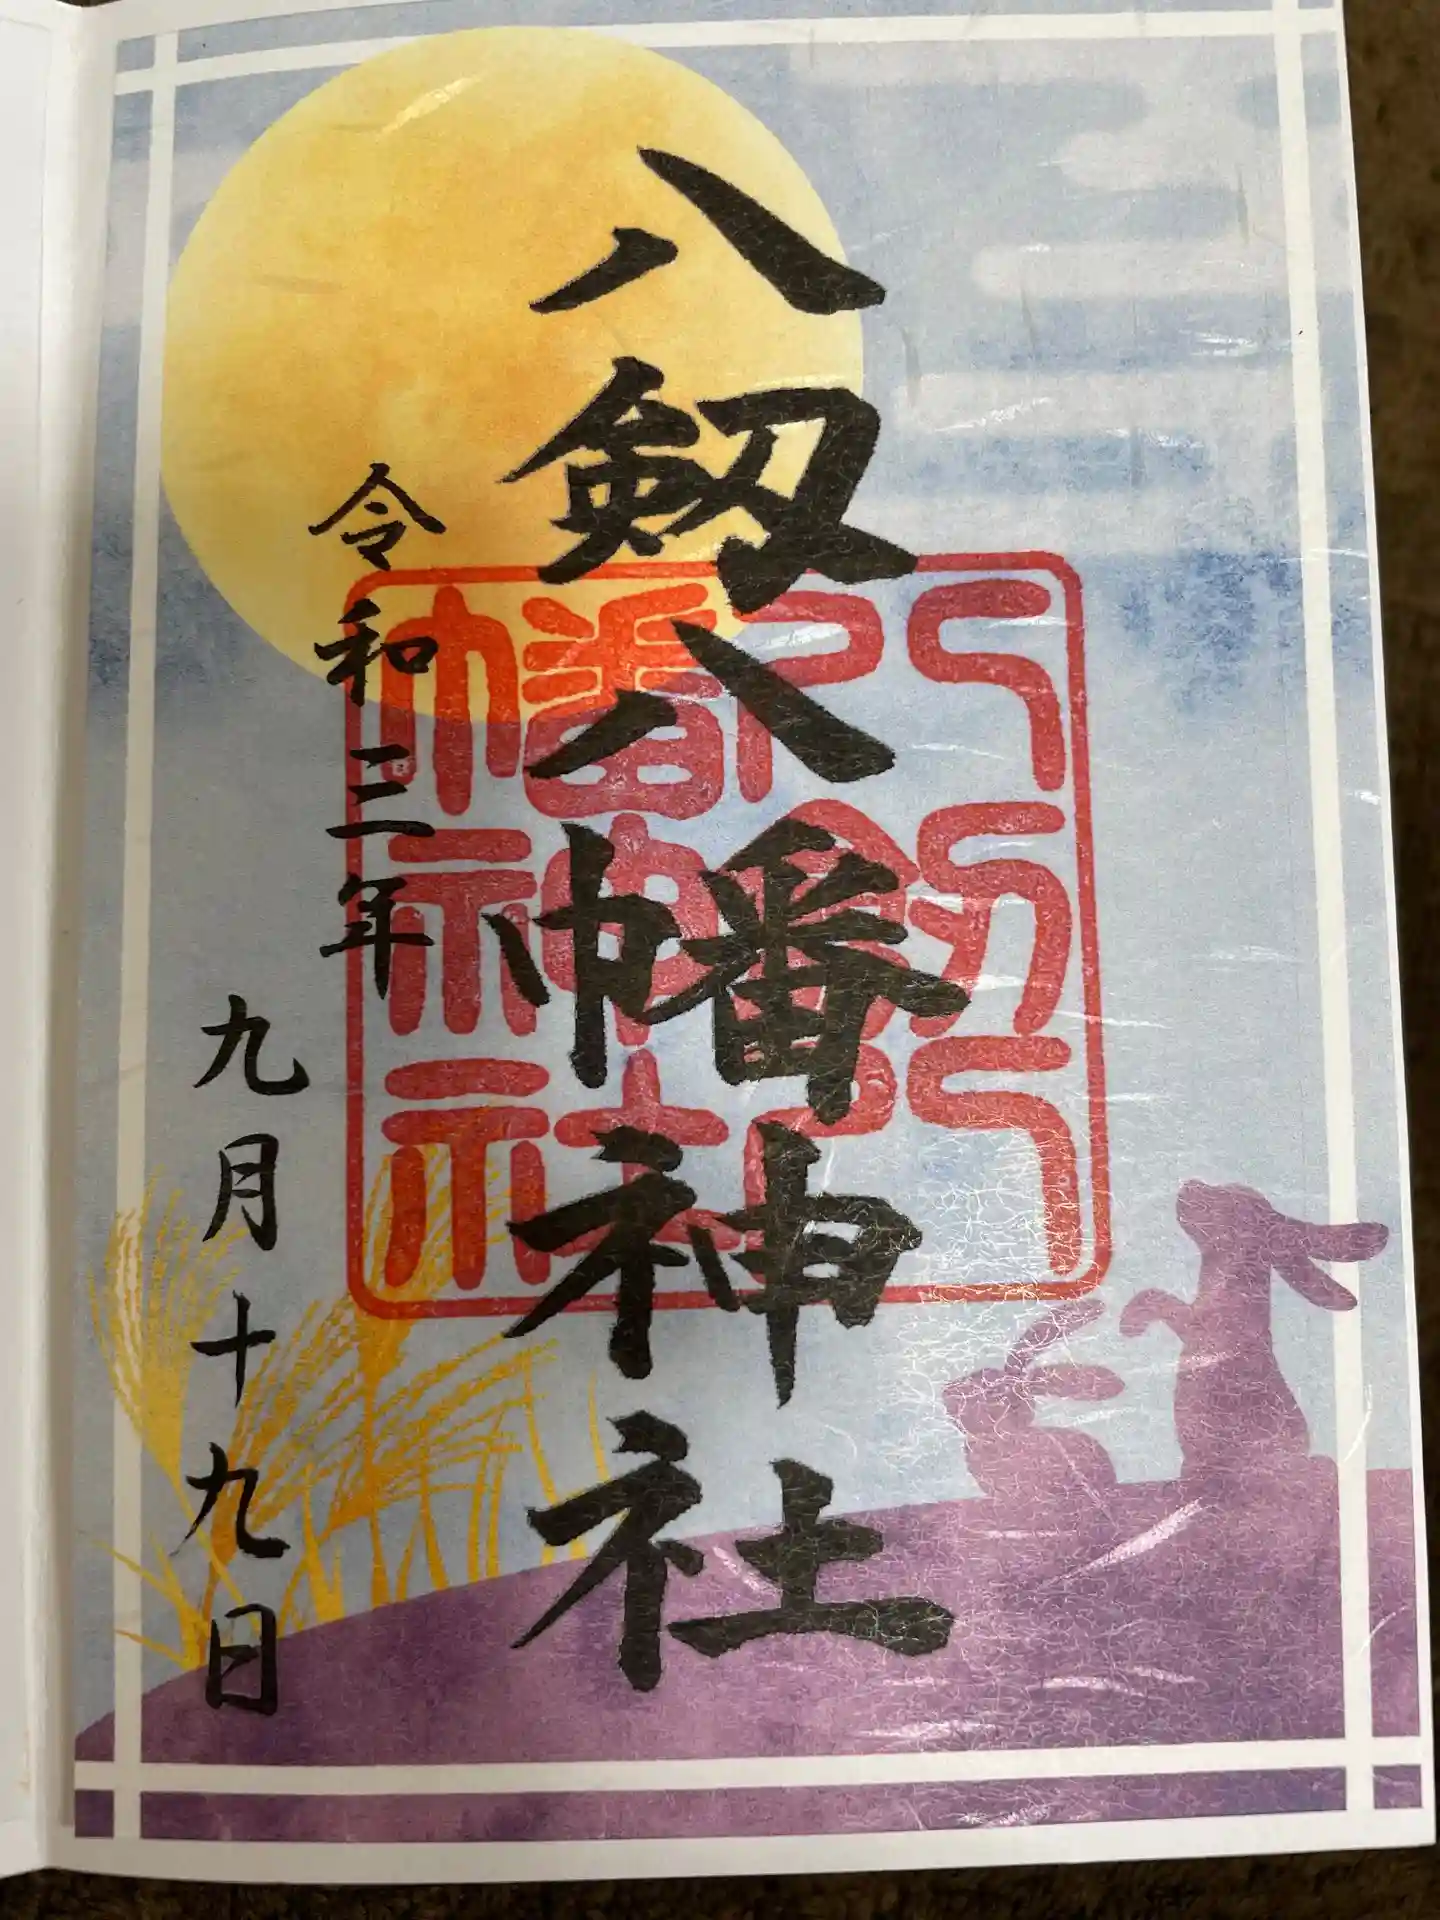 八剱八幡神社
八剱八
幡神社
令和三年
九月十九日